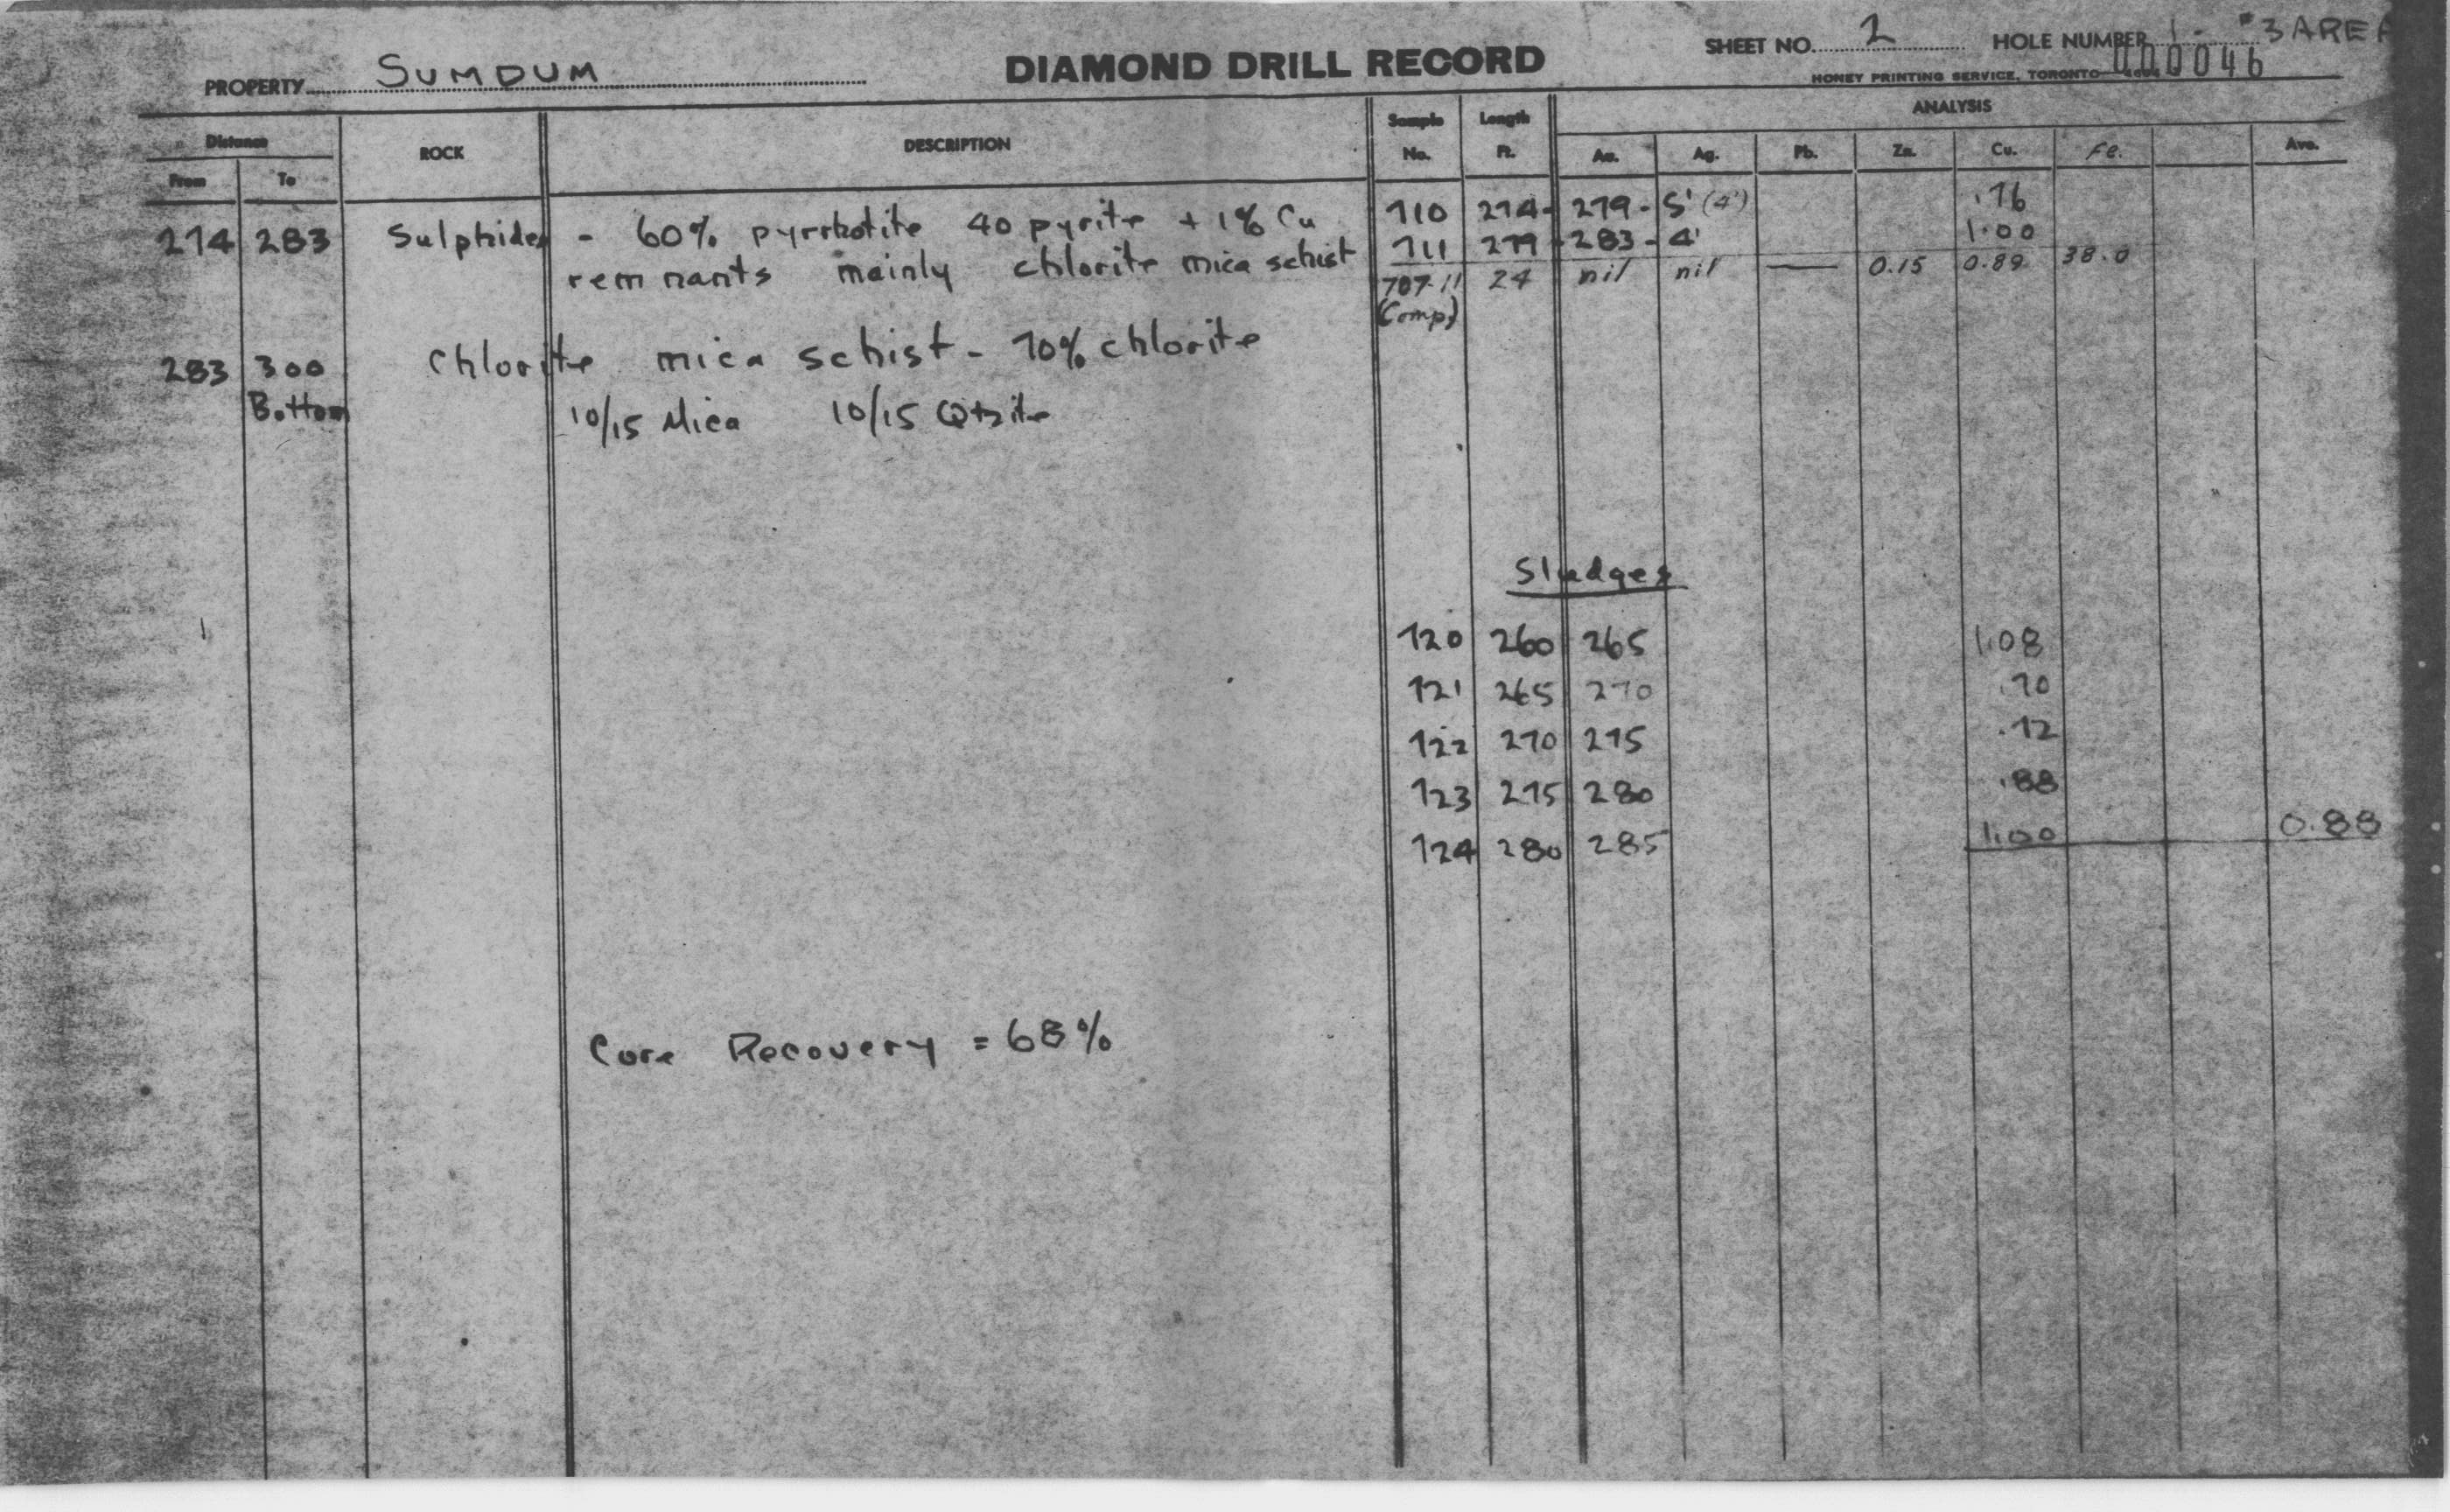 PROPERTY SUMDUM DIAMOND DRILL RECORD SHEET NO. 2 HOLE NUMBER 1 - #3 AREA
HONEY PRINTING SERVICE, TORONTO 000046
Distance ROCK DESCRIPTION Sample No. Length Ft. ANALYSIS
From To Au. Ag. Pb. Zn. Cu. Fe. Ave.
274 283 Sulphides - 60% pyrrhotite 40 pyrite + 1% Cu 710 274- 279- 5' (4') .76
remnants mainly chlorite mica schist 711 279 - 283 - 4' 1.00
707-11 24 nil nil — 0.15 0.89 38.0
(Comp)
283 300 Chlorite mica schist - 70% chlorite
Bottom 10/15 Mica 10/15 Qtzite
Sludges
720 260 265 1.08
721 265 270 .70
722 270 275 .72
723 275 280 .88
724 280 285 1.00 0.88
Core Recovery = 68%